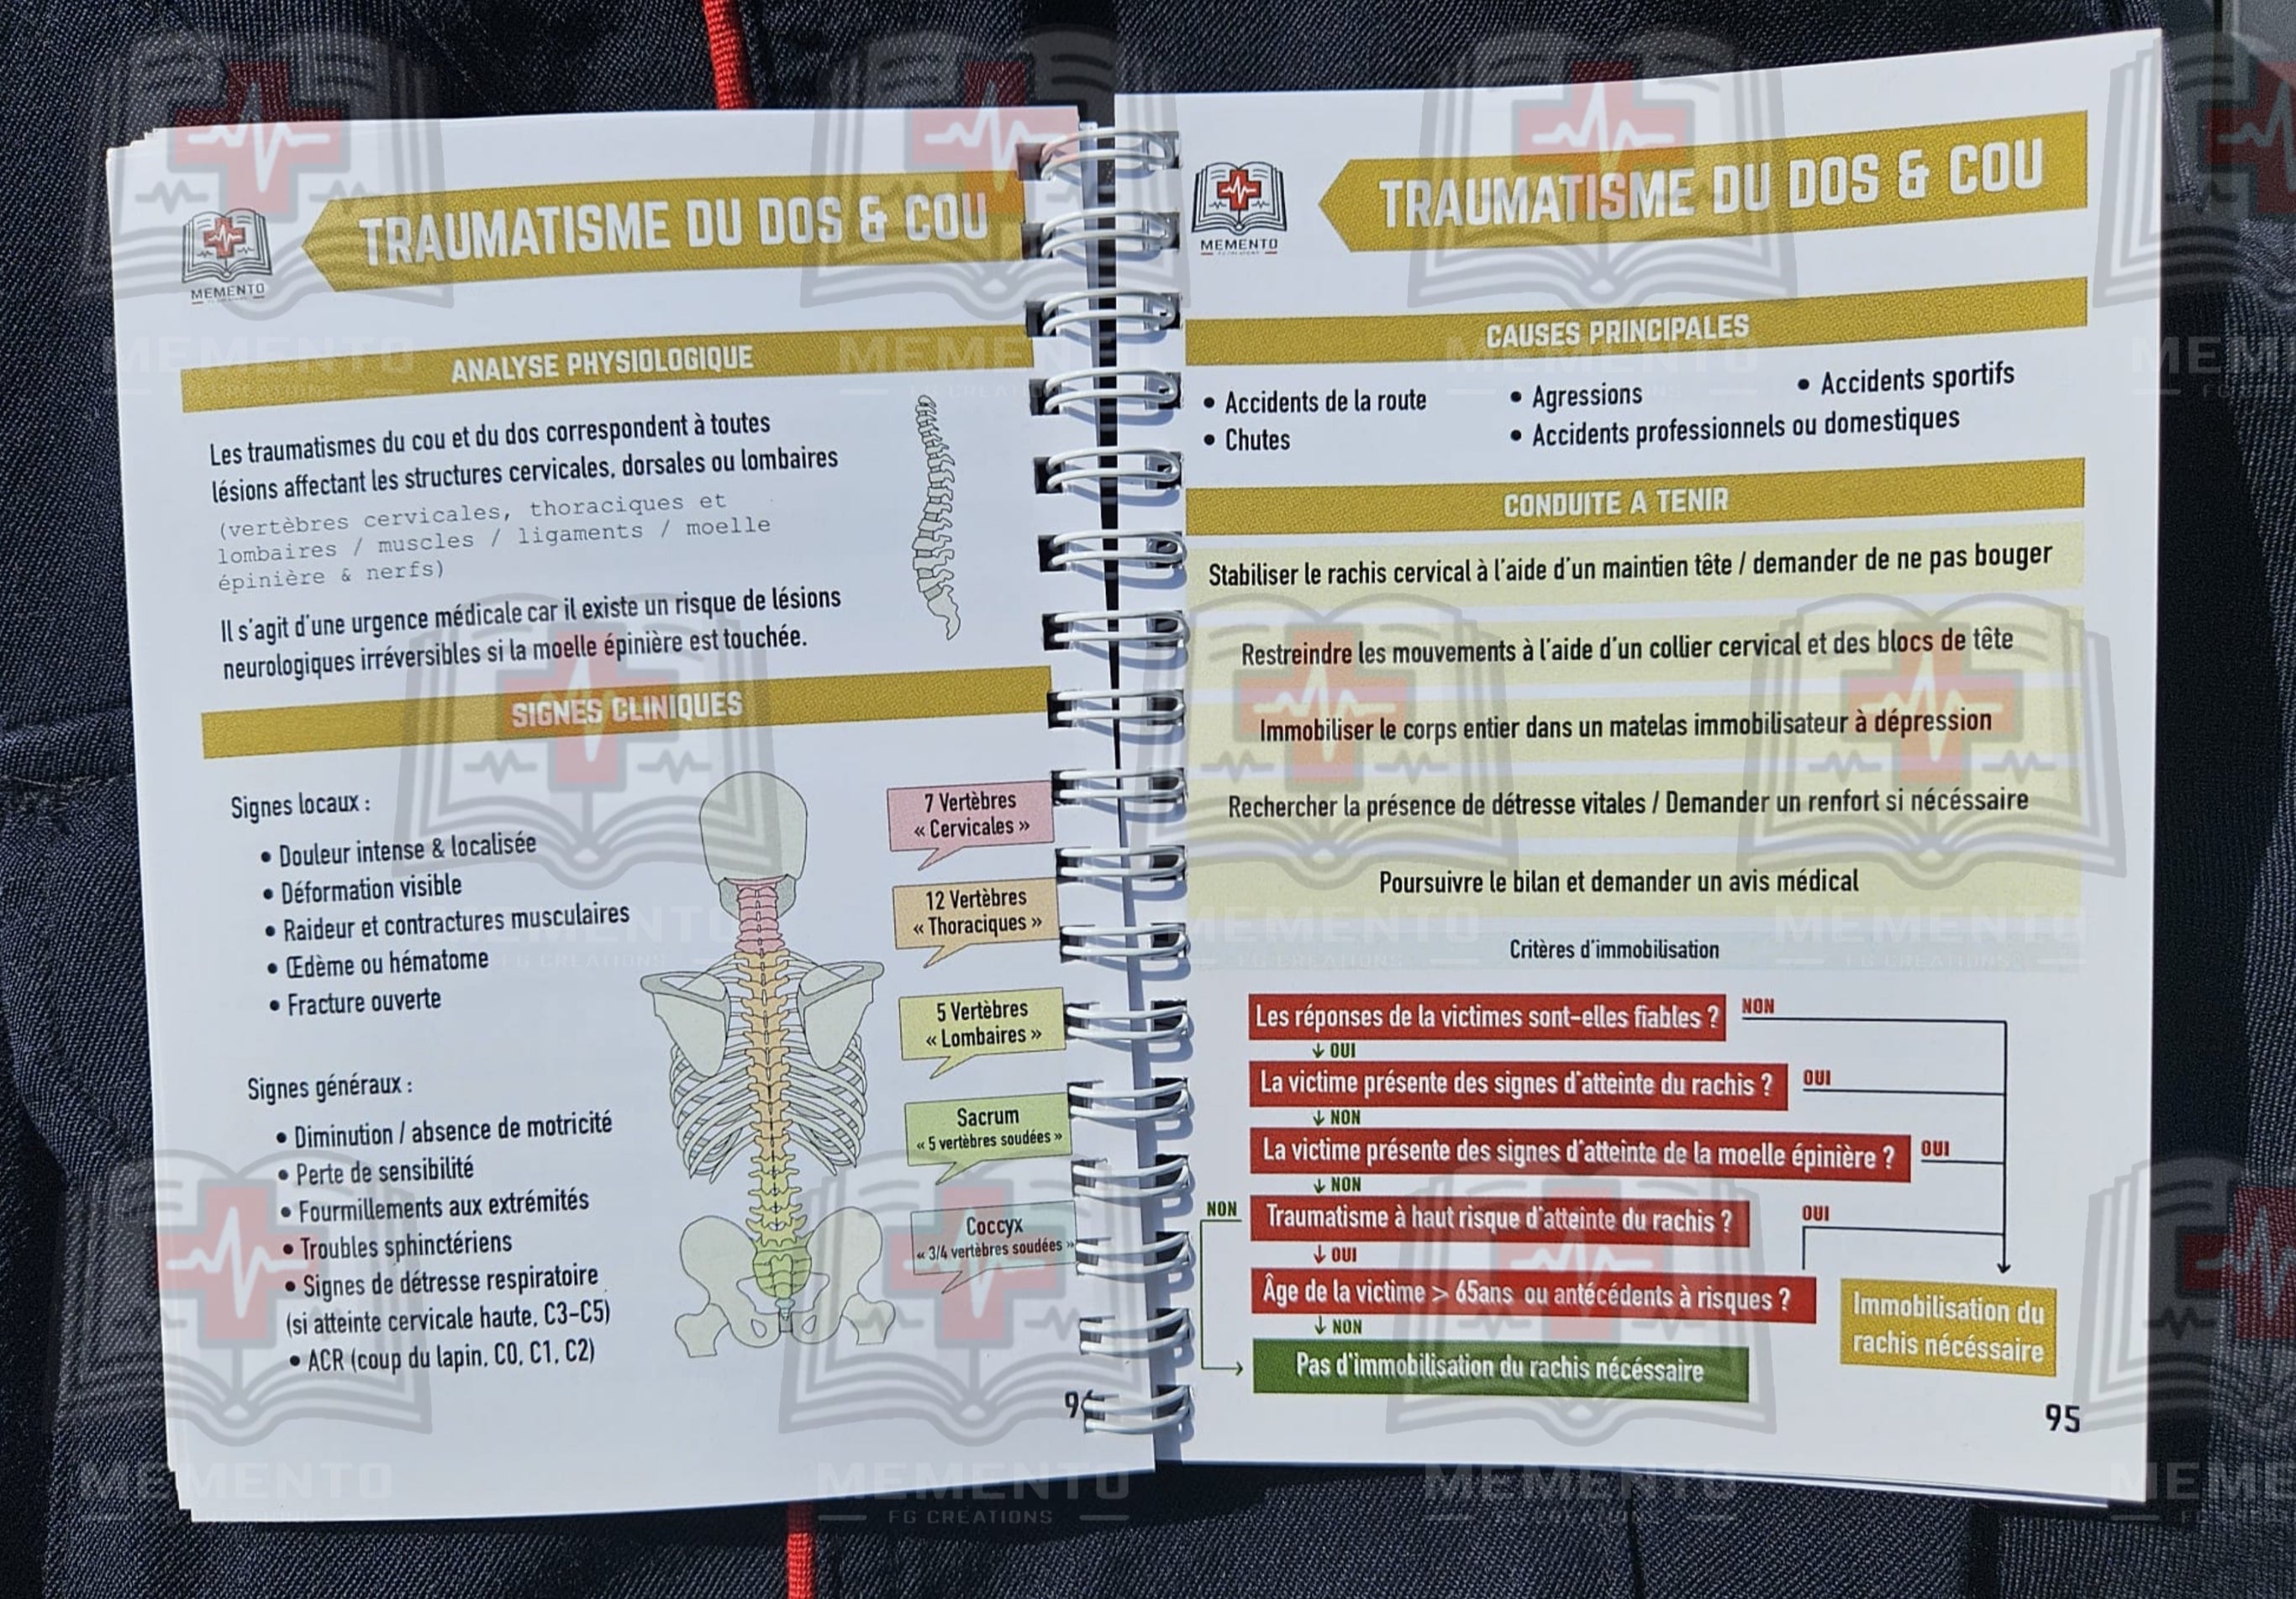 MEMENTO
TRAUMATISME DU DOS & COU
ANALYSE PHYSIOLOGIQUE
Les traumatismes du cou et du dos correspondent à toutes
lésions affectant les structures cervicales, dorsales ou lombaires
(vertèbres cervicales, thoraciques et
lombaires / muscles / ligaments / moelle
épinière & nerfs)
Il s'agit d'une urgence médicale car il existe un risque de lésions
neurologiques irréversibles si la moelle épinière est touchée.
SIGNES CLINIQUES
Signes locaux :
• Douleur intense & localisée
• Déformation visible
• Raideur et contractures musculaires
• Œdème ou hématome
• Fracture ouverte
Signes généraux :
• Diminution / absence de motricité
• Perte de sensibilité
• Fourmillements aux extrémités
• Troubles sphinctériens
• Signes de détresse respiratoire
(si atteinte cervicale haute, C3-C5)
• ACR (coup du lapin, C0, C1, C2)
7 Vertèbres
« Cervicales »
12 Vertèbres
« Thoraciques »
5 Vertèbres
« Lombaires »
Sacrum
« 5 vertèbres soudées »
Coccyx
« 3/4 vertèbres soudées »
MEMENTO
TRAUMATISME DU DOS & COU
CAUSES PRINCIPALES
• Accidents de la route
• Chutes
• Agressions
• Accidents sportifs
• Accidents professionnels ou domestiques
CONDUITE A TENIR
Stabiliser le rachis cervical à l'aide d'un maintien tête / demander de ne pas bouger
Restreindre les mouvements à l'aide d'un collier cervical et des blocs de tête
Immobiliser le corps entier dans un matelas immobilisateur à dépression
Rechercher la présence de détresse vitales / Demander un renfort si nécéssaire
Poursuivre le bilan et demander un avis médical
Critères d'immobilisation
Les réponses de la victimes sont-elles fiables ? NON
↓ OUI
La victime présente des signes d'atteinte du rachis ? OUI
↓ NON
La victime présente des signes d'atteinte de la moelle épinière ? OUI
↓ NON
NON Traumatisme à haut risque d'atteinte du rachis ? OUI
↓ OUI
Âge de la victime > 65ans ou antécédents à risques ?
↓ NON
Pas d'immobilisation du rachis nécéssaire
Immobilisation du
rachis nécéssaire
95
MEMENTO
FG CREATIONS